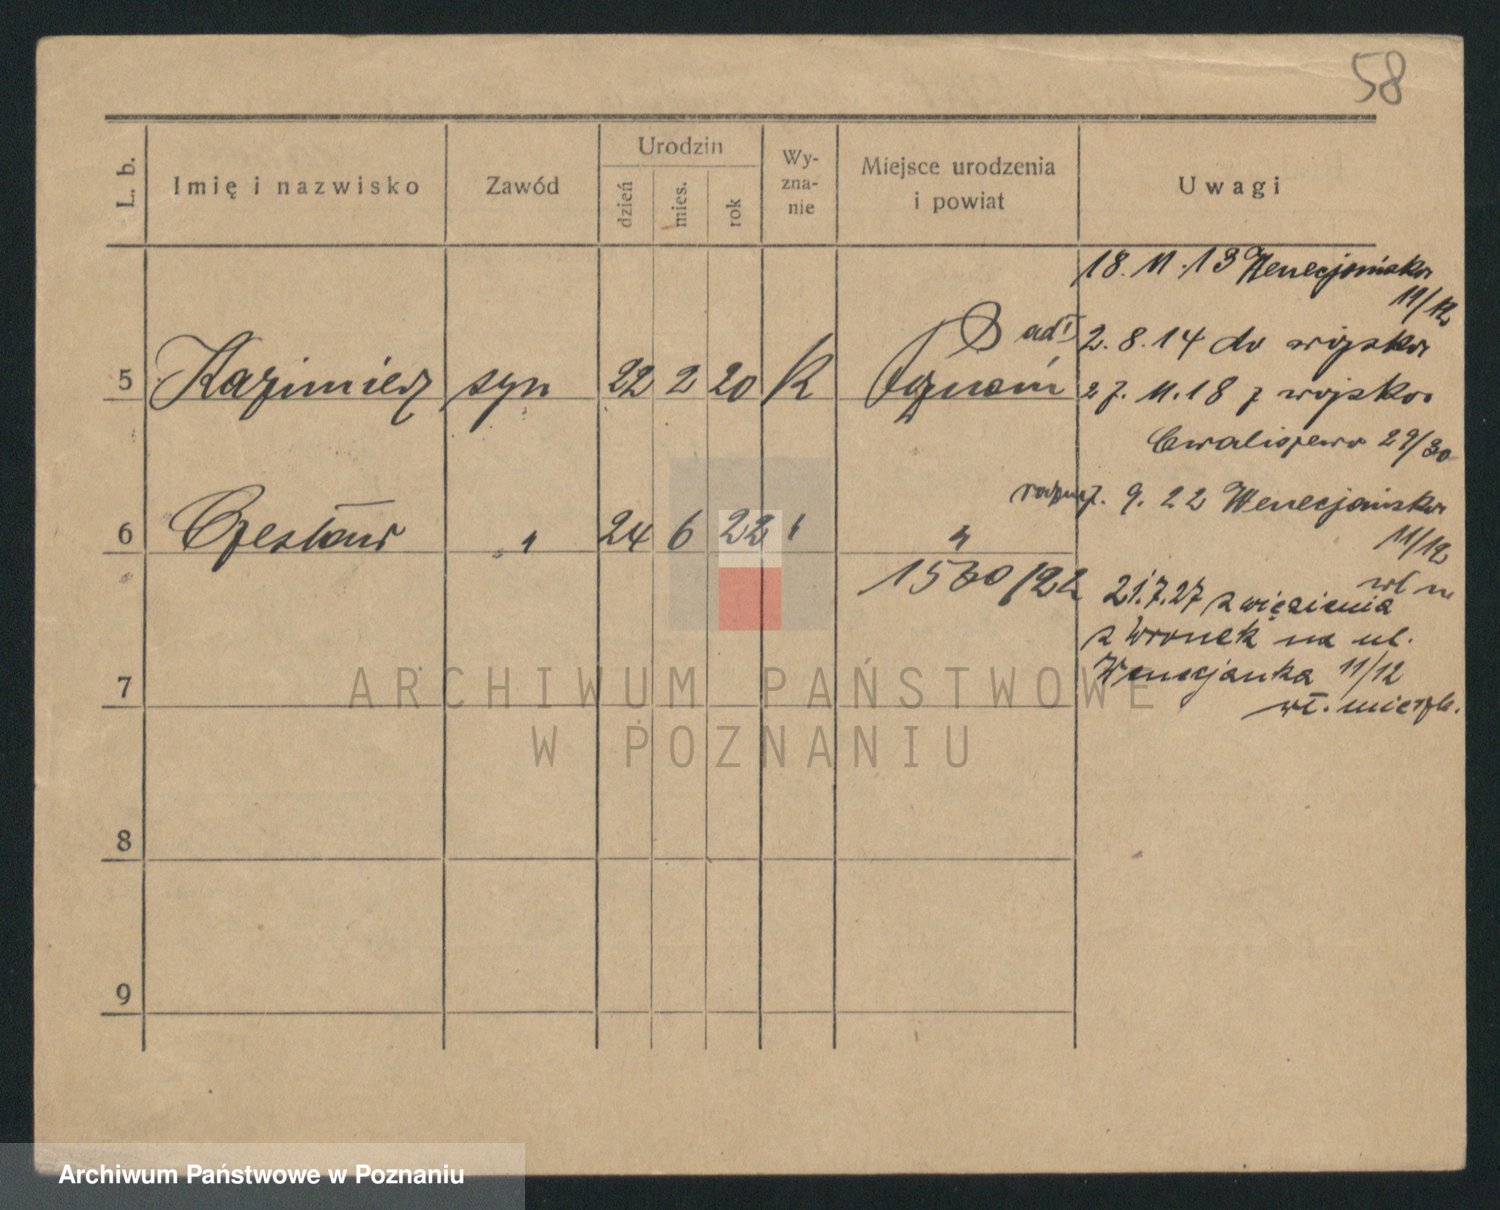 58
L. b.
Imię i nazwisko
Zawód
Urodzin
dzień
mies.
rok
Wy-
zna-
nie
Miejsce urodzenia
i powiat
Uwagi
18. 11. 13 Wenecjańska
11/12
ad 1 2. 8. 14 do wojska
5 Kazimierz syn 22 2 20 k Poznań
27. 11. 18 z wojska
Chwaliszewo 29/30
7. 9. 22 Wenecjańska
11/12
6 Czesław " 24 6 22 " "
1560/22
wł m
21.7.27 z więzienia
z Wronek na ul.
Wenecjanka 11/12
wł. mieszk.
7
8
9
ARCHIWUM PAŃSTWOWE
W POZNANIU
Archiwum Państwowe w Poznaniu